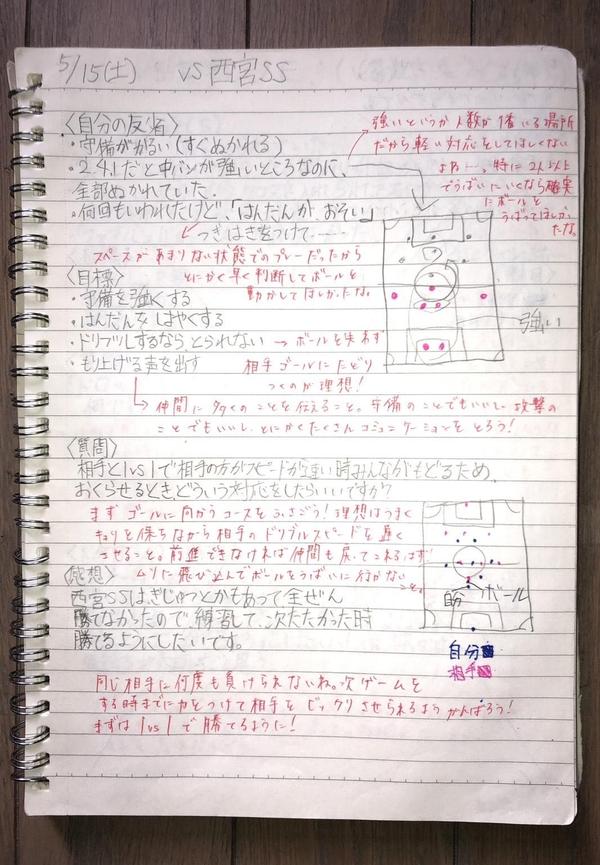 5/15(土) VS 西宮SS
〈自分の反省〉
・守備がかるい(すぐぬかれる)
・2.4.1だと中バンが強いところなのに、
全部ぬかれていた.
・何回もいわれたけど、「はんだんが、おそい」
つぎはきをつけて……
強いというか人数が1番いる場所
だから軽い対応をしてほしくない
よねー、特に2人以上
でうばいにいくなら確実
にボールを
うばってほしかっ
たな。
スペースがあまりない状態でのプレーだったから
とにかく早く判断してボールを
動かしてほしかったな。
〈目標〉
・守備を強くする
・はんだんをはやくする
・ドリブルしるなら、とられない → ボールを失わず
相手ゴールにたどり
つくのが理想!
・もり上げる声を出す
→ 仲間に多くのことを伝えること。守備のことでもいいし、攻撃の
ことでもいいし、とにかくたくさんコミュニケーションをとろう!
強い
〈質問〉
相手と1vs1で相手の方がスピードが速い時みんながもどるため、
おくらせるとき、どういう対応をしたらいいですか?
まずゴールに向かうコースをふさごう!理想はうまく
きょりを保ちながら相手のドリブルスピードを遅く
させること。前進できなければ仲間も戻ってこれるはず!
ムリに飛び込んでボールをうばいに行かない
こと。
〈感想〉
西宮SSはぎじゅつとかもあって、全ぜん
勝てなかったので、練習して、次たたかった時
勝てるようにしたいです。
自分
ボール
自分
相手
同じ相手に何度も負けられないね。次ゲームを
する時までに力をつけて相手をビックリさせられるようがんばろう!
まずは1vs1で勝てるように!